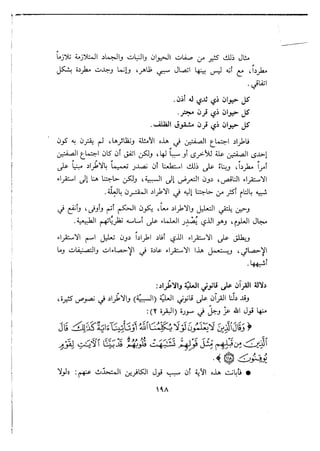 مثال ذلك كثير من صفات الحيوان والنبات والجماد المتلازمة تلازماً
مطرداً، مع أنه ليس بينها اتصال سببي ظاهر، وإنما وجدت مطردة بشكل
اتفاقي.
كل حيوان ذي ثدي له أذن.
كل حيوان ذي قرن مجتر.
كل حيوان ذي قرن مشقوق الظلف.
فاطراد اجتماع الصفتين في هذه الأمثلة ونظائرها، لم يقترن به كون
إحدى الصفتين علة للأخرى أو سبباً لها، ولكن اتفق أن كان اجتماع الصفتين
أمراً مطرداً، وبناءً على ذلك استطعنا أن نصدر تعميماً بالاطراد مبنياً على
الاستقراء الناقص، دون التعرض إلى السببية، ولكن حاجتنا هنا إلى استقراء
شبيه بالتام أكثر من حاجتنا إليه في الاطراد المقترن بالعلة.
وحين يلتقي التعليل والاطراد معاً، يكون الحكم أتم وأوفى، وأنفع في
مجال العلوم، وهو الذي يُصدر العلماء على أساسه نظرياتهم الطبيعية.
ويطلق على الاستقراء الذي أفاد اطراداً دون تعليل اسم الاستقراء
الإحصائي، ويستعمل هذا الاستقراء عادة في الإحصاءات والتصنيفات وما
أشبهها.
دلالة القرآن على قانوني العلية والاطراد:
وقد دلنا القرآن على قانوني العلية (السببية) والاطراد في نصوص كثيرة،
منها قول الله عزّ وجلّ في سورة (البقرة ٢):
﴿وَقَالَ الَّذِينَ لَا يَعْلَمُونَ لَوْلَا يُكَلِّمُنَا اللَّهُ أَوْ تَأْتِينَا آيَةٌ كَذَٰلِكَ قَالَ
الَّذِينَ مِن قَبْلِهِم مِّثْلَ قَوْلِهِمْ تَشَابَهَتْ قُلُوبُهُمْ قَدْ بَيَّنَّا الْآيَاتِ لِقَوْمٍ
يُوقِنُونَ﴾.
● فأبانت هذه الآية أن سبب قول الكافرين المتحدث عنهم: «لولا
١٩٨